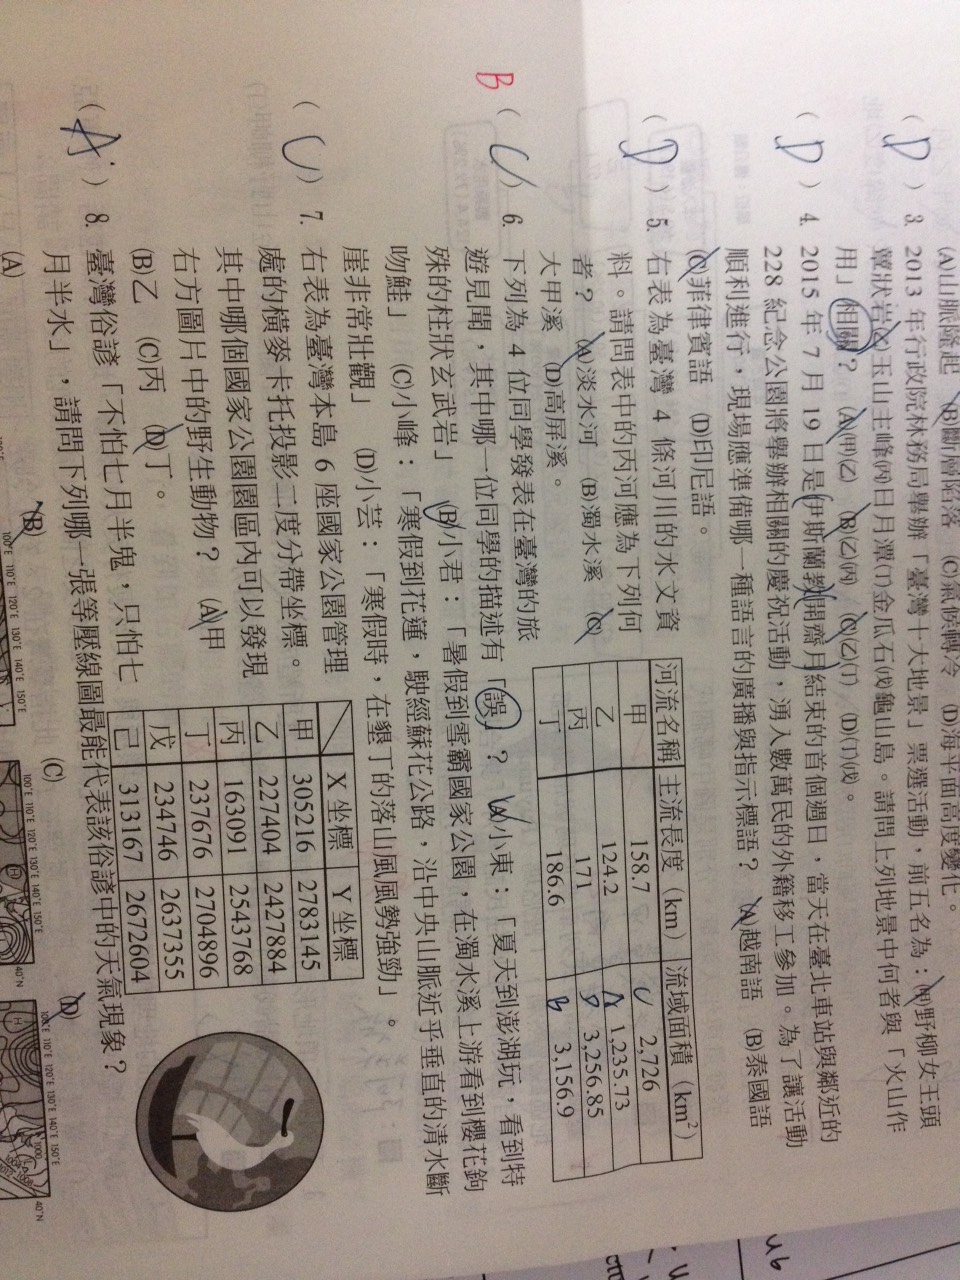 (A)山脈隆起 (B)斷層陷落 (C)氣候轉冷 (D)海平面高度變化。
( D ) 3. 2013 年行政院林務局舉辦「臺灣十大地景」票選活動,前五名為:(甲)野柳女王頭
蕈狀岩(乙)玉山主峰(丙)日月潭(丁)金瓜石(戊)龜山島。請問上列地景中何者與「火山作
用」相關? (A)(甲)(乙) (B)(乙)(丙) (C)(乙)(丁) (D)(丁)(戊)。
( D ) 4. 2015 年 7 月 19 日是伊斯蘭教開齋月結束的首個週日,當天在臺北車站與鄰近的
228 紀念公園將舉辦相關的慶祝活動,湧入數萬民的外籍移工參加。為了讓活動
順利進行,現場應準備哪一種語言的廣播與指示標語? (A)越南語 (B)泰國語
(C)菲律賓語 (D)印尼語。
( D ) 5. 右表為臺灣 4 條河川的水文資
料。請問表中的丙河應為下列何
者? (A)淡水河 (B)濁水溪 (C)
大甲溪 (D)高屏溪。
河流名稱 主流長度(km) 流域面積(km²)
甲 158.7 C 2,726
乙 124.2 A 1,235.73
丙 171 D 3,256.85
丁 186.6 B 3,156.9
B ( C ) 6. 下列為 4 位同學發表在臺灣的旅
遊見聞,其中哪一位同學的描述有「誤」? (A)小東:「夏天到澎湖玩,看到特
殊的柱狀玄武岩」 (B)小君:「暑假到雪霸國家公園,在濁水溪上游看到櫻花鉤
吻鮭」 (C)小峰:「寒假到花蓮,駛經蘇花公路,沿中央山脈近乎垂直的清水斷
崖非常壯觀」 (D)小芸:「寒假時,在墾丁的落山風風勢強勁」。
( C ) 7. 右表為臺灣本島 6 座國家公園管理
處的橫麥卡托投影二度分帶坐標。
其中哪個國家公園園區內可以發現
右方圖片中的野生動物? (A)甲
(B)乙 (C)丙 (D)丁。
X 坐標 Y 坐標
甲 305216 2783145
乙 227404 2427884
丙 163091 2543768
丁 237676 2704896
戊 234746 2637355
己 313167 2672604
( A ) 8. 臺灣俗諺「不怕七月半鬼,只怕七
月半水」,請問下列哪一張等壓線圖最能代表該俗諺中的天氣現象?
(A) (B) (C) (D)
100°E 110°E 120°E 130°E 140°E 150°E
100°E 110°E 120°E 130°E 140°E 150°E
40°N
100°E 110°E 120°E 130°E 140°E 150°E
40°N